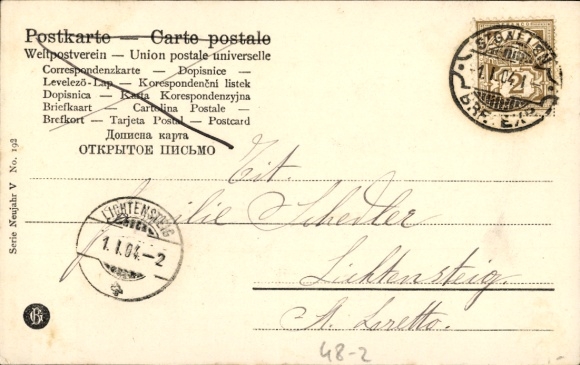 Postkarte — Carte postale
Weltpostverein — Union postale universelle
Correspondenzkarte — Dopisnice —
Levelező-Lap — Korespondenční listek
Dopisnica — Karta Korespondenzyjna
Briefkaart — Cartolina Postale —
Brefkort — Tarjeta Postal — Postcard
Дописна карта
ОТКРЫТОЕ ПИСЬМО
Serie Neujahr V No. 192
ST. GALLEN
1.I.04
BRF. EXP.
2
LICHTENSTEIG
1.I.04.–2
Tit.
Familie Schedler
Lichtensteig.
A. Loretto.
48-2